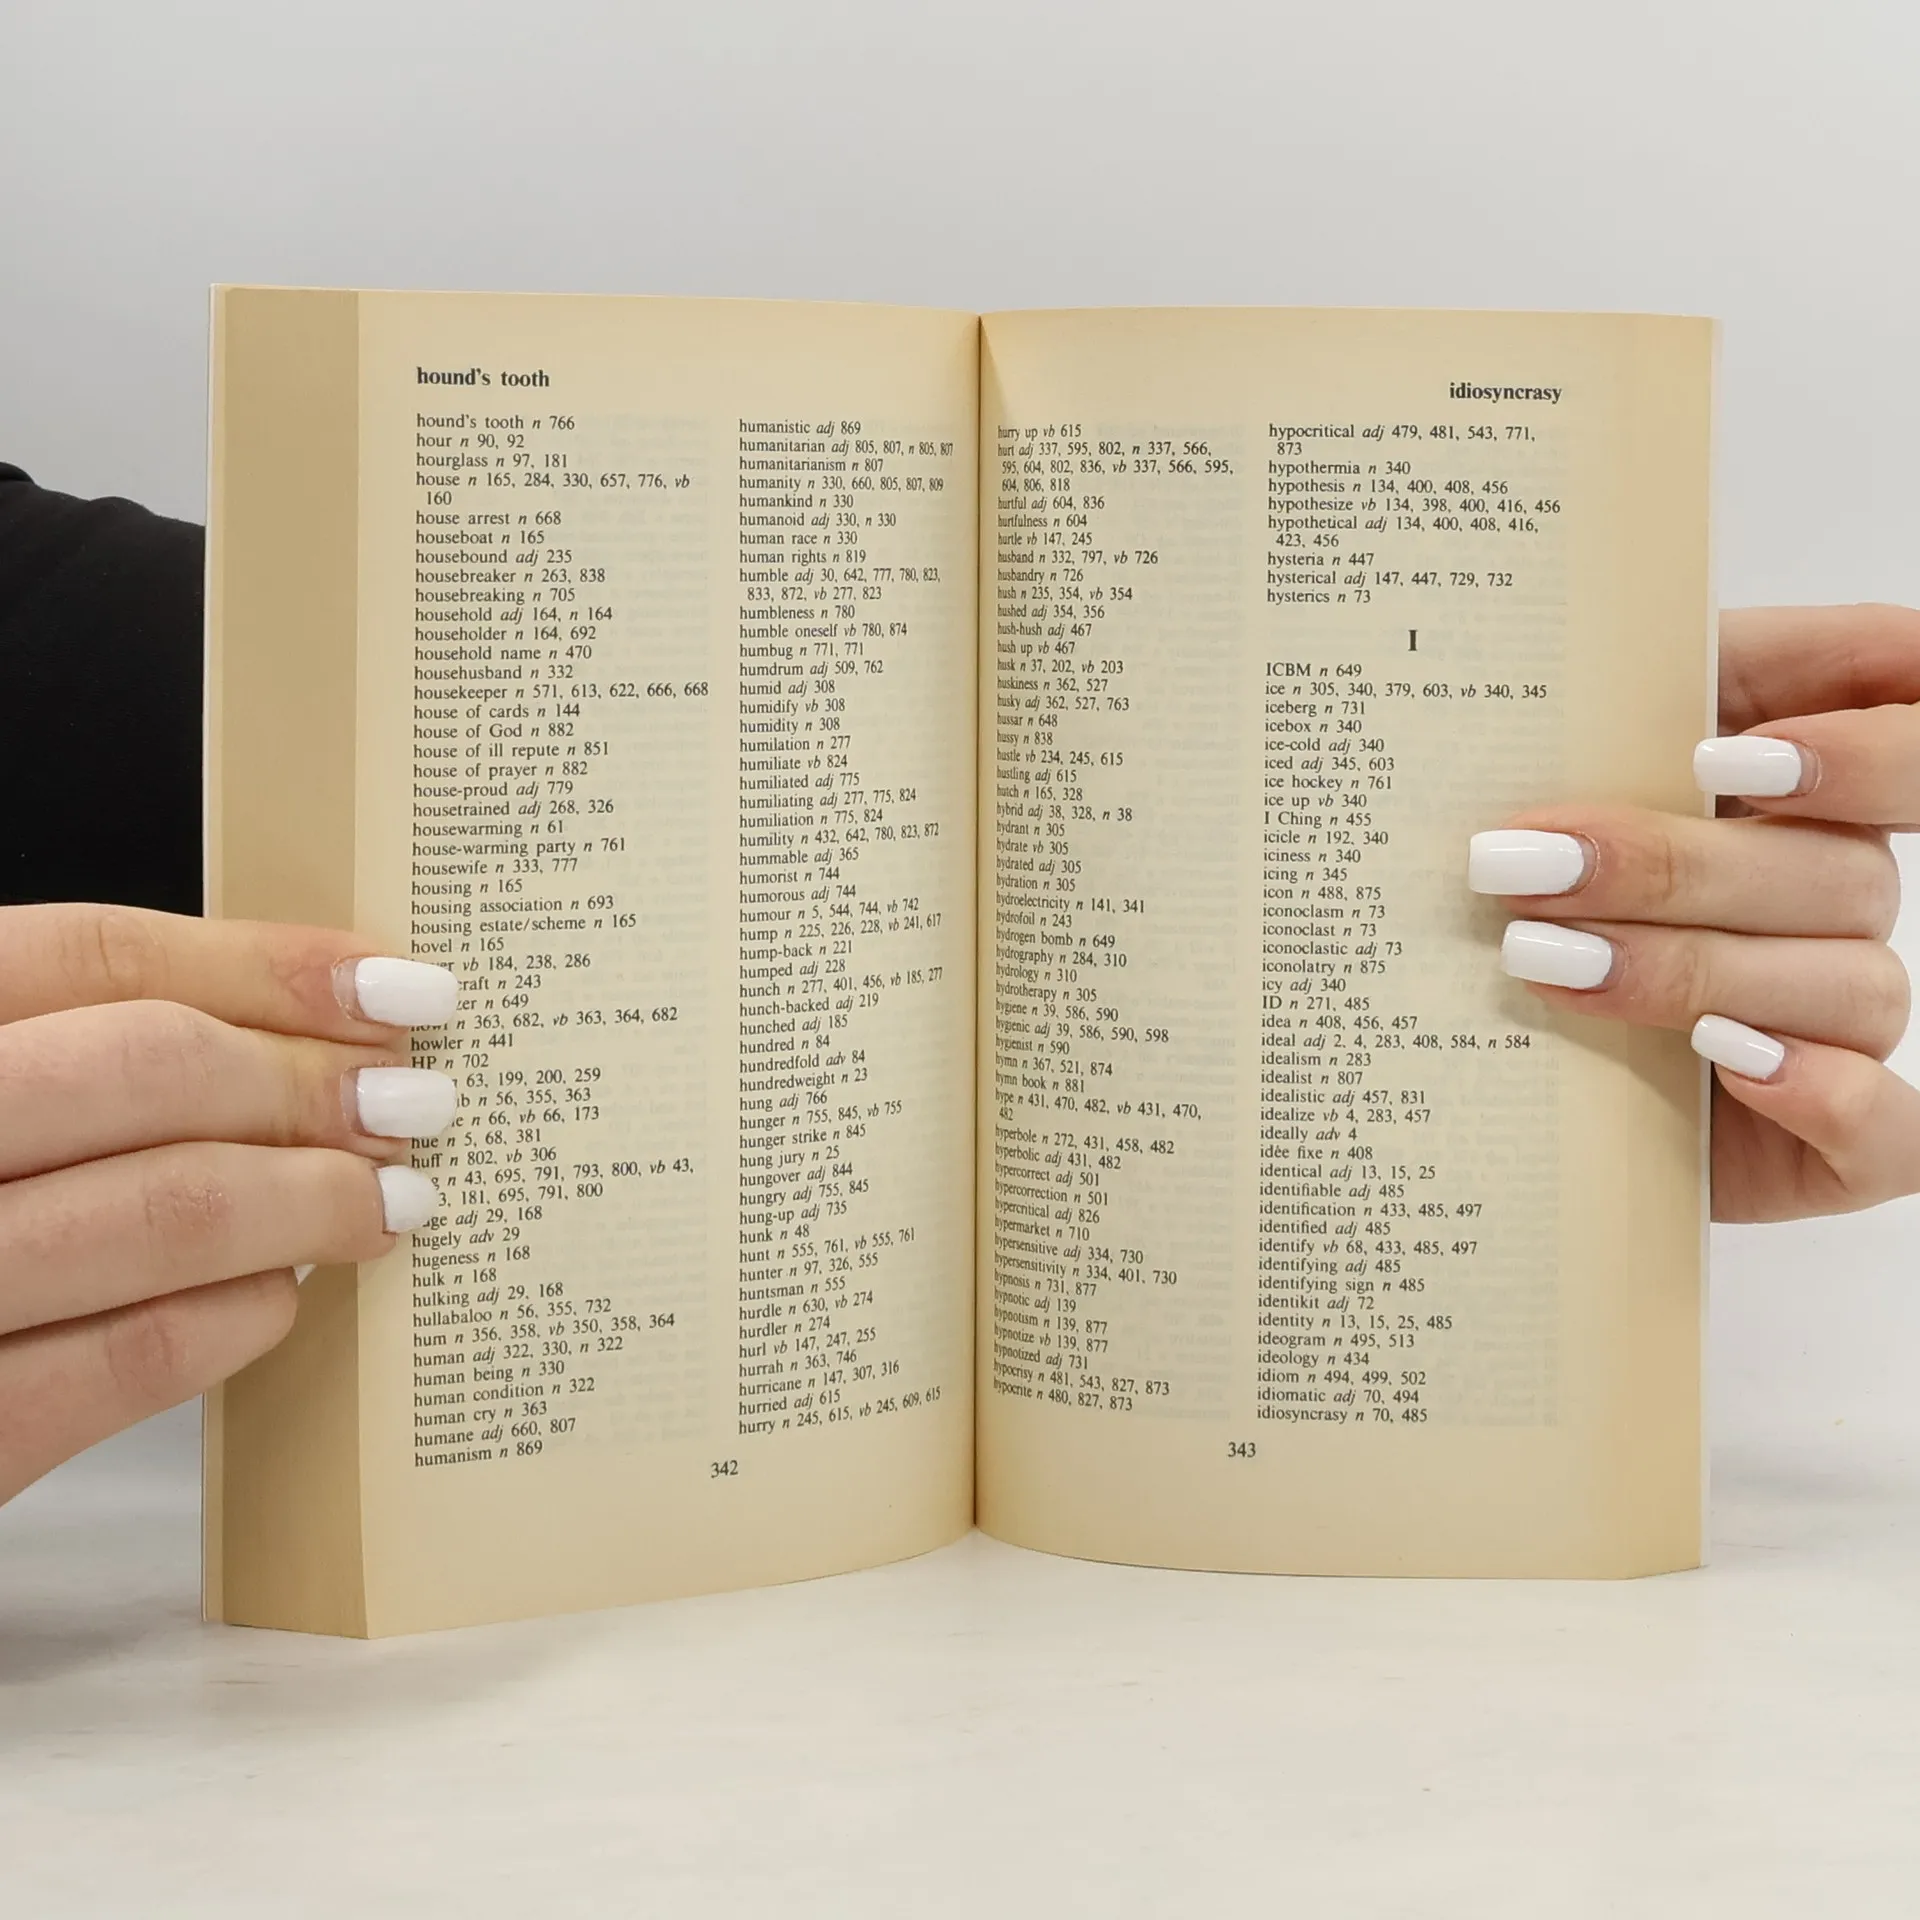 hound's tooth
hound's tooth n 766
hour n 90, 92
hourglass n 97, 181
house n 165, 284, 330, 657, 776, vb
160
house arrest n 668
houseboat n 165
housebound adj 235
housebreaker n 263, 838
housebreaking n 705
household adj 164, n 164
householder n 164, 692
household name n 470
househusband n 332
housekeeper n 571, 613, 622, 666, 668
house of cards n 144
house of God n 882
house of ill repute n 851
house of prayer n 882
house-proud adj 779
housetrained adj 268, 326
housewarming n 61
house-warming party n 761
housewife n 333, 777
housing n 165
housing association n 693
housing estate/scheme n 165
hovel n 165
vb 184, 238, 286
n 243
n 649
n 363, 682, vb 363, 364, 682
howler n 441
HP n 702
63, 199, 200, 259
n 56, 355, 363
n 66, vb 66, 173
hue n 5, 68, 381
huff n 802, vb 306
n 43, 695, 791, 793, 800, vb 43,
181, 695, 791, 800
adj 29, 168
hugely adv 29
hugeness n 168
hulk n 168
hulking adj 29, 168
hullabaloo n 56, 355, 732
hum n 356, 358, vb 350, 358, 364
human adj 322, 330, n 322
human being n 330
human condition n 322
human cry n 363
humane adj 660, 807
humanism n 869
humanistic adj 869
humanitarian adj 805, 807, n 805, 807
humanitarianism n 807
humanity n 330, 660, 805, 807, 809
humankind n 330
humanoid adj 330, n 330
human race n 330
human rights n 819
humble adj 30, 642, 777, 780, 823,
833, 872, vb 277, 823
humbleness n 780
humble oneself vb 780, 874
humbug n 771, 771
humdrum adj 509, 762
humid adj 308
humidify vb 308
humidity n 308
humilation n 277
humiliate vb 824
humiliated adj 775
humiliating adj 277, 775, 824
humiliation n 775, 824
humility n 432, 642, 780, 823, 872
hummable adj 365
humorist n 744
humorous adj 744
humour n 5, 544, 744, vb 742
hump n 225, 226, 228, vb 241, 617
hump-back n 221
humped adj 228
hunch n 277, 401, 456, vb 185, 277
hunch-backed adj 219
hunched adj 185
hundred n 84
hundredfold adv 84
hundredweight n 23
hung adj 766
hunger n 755, 845, vb 755
hunger strike n 845
hung jury n 25
hungover adj 844
hungry adj 755, 845
hung-up adj 735
hunk n 48
hunt n 555, 761, vb 555, 761
hunter n 97, 326, 555
huntsman n 555
hurdle n 630, vb 274
hurdler n 274
hurl vb 147, 247, 255
hurrah n 363, 746
hurricane n 147, 307, 316
hurried adj 615
hurry n 245, 615, vb 245, 609, 615
342
idiosyncrasy
hurry up vb 615
hurt adj 337, 595, 802, n 337, 566,
595, 604, 802, 836, vb 337, 566, 595,
604, 806, 818
hurtful adj 604, 836
hurtfulness n 604
hurtle vb 147, 245
husband n 332, 797, vb 726
husbandry n 726
hush n 235, 354, vb 354
hushed adj 354, 356
hush-hush adj 467
hush up vb 467
husk n 37, 202, vb 203
huskiness n 362, 527
husky adj 362, 527, 763
hussar n 648
hussy n 838
hustle vb 234, 245, 615
hustling adj 615
hutch n 165, 328
hybrid adj 38, 328, n 38
hydrant n 305
hydrate vb 305
hydrated adj 305
hydration n 305
hydroelectricity n 141, 341
hydrofoil n 243
hydrogen bomb n 649
hydrography n 284, 310
hydrology n 310
hydrotherapy n 305
hygiene n 39, 586, 590
hygienic adj 39, 586, 590, 598
hygienist n 590
hymn n 367, 521, 874
hymn book n 881
hype n 431, 470, 482, vb 431, 470,
482
hyperbole n 272, 431, 458, 482
hyperbolic adj 431, 482
hypercorrect adj 501
hypercorrection n 501
hypercritical adj 826
hypermarket n 710
hypersensitive adj 334, 730
hypersensitivity n 334, 401, 730
hypnosis n 731, 877
hypnotic adj 139
hypnotism n 139, 877
hypnotize vb 139, 877
hypnotized adj 731
hypocrisy n 481, 543, 827, 873
hypocrite n 480, 827, 873
hypocritical adj 479, 481, 543, 771,
873
hypothermia n 340
hypothesis n 134, 400, 408, 456
hypothesize vb 134, 398, 400, 416, 456
hypothetical adj 134, 400, 408, 416,
423, 456
hysteria n 447
hysterical adj 147, 447, 729, 732
hysterics n 73
I
ICBM n 649
ice n 305, 340, 379, 603, vb 340, 345
iceberg n 731
icebox n 340
ice-cold adj 340
iced adj 345, 603
ice hockey n 761
ice up vb 340
I Ching n 455
icicle n 192, 340
iciness n 340
icing n 345
icon n 488, 875
iconoclasm n 73
iconoclast n 73
iconoclastic adj 73
iconolatry n 875
icy adj 340
ID n 271, 485
idea n 408, 456, 457
ideal adj 2, 4, 283, 408, 584, n 584
idealism n 283
idealist n 807
idealistic adj 457, 831
idealize vb 4, 283, 457
ideally adv 4
idèe fixe n 408
identical adj 13, 15, 25
identifiable adj 485
identification n 433, 485, 497
identified adj 485
identify vb 68, 433, 485, 497
identifying adj 485
identifying sign n 485
identikit adj 72
identity n 13, 15, 25, 485
ideogram n 495, 513
ideology n 434
idiom n 494, 499, 502
idiomatic adj 70, 494
idiosyncrasy n 70, 485
343